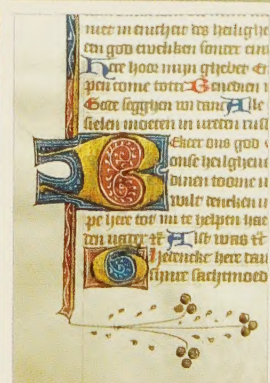 inte in eincheit des heilighe
en god eweliken sonder ein
Here hoor mijn ghebet E
pen come totti Benedien
Gode segghen wi danc Alle
sielen moeten in vreden rus
Ekeer ons god
onse heilgheui
dinen toorne
wilt denken
pe here tot mi te helpen hae
den vader Als was
hedencke here dau
sijnre sachtmoed